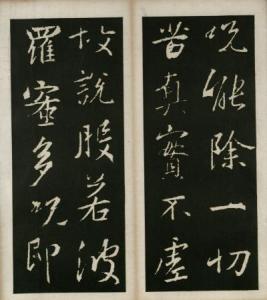 呪能除一切
苦真實不虛
故說般若波
羅蜜多呪即